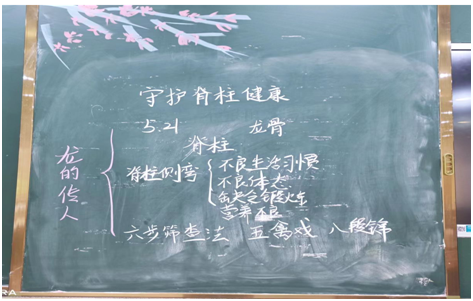 守护脊柱健康
5.21 龙骨
脊柱
龙的传人
脊柱侧弯
不良生活习惯
不良体态
缺乏锻炼
营养不良
六步筛查法 五禽戏 八段锦
RA